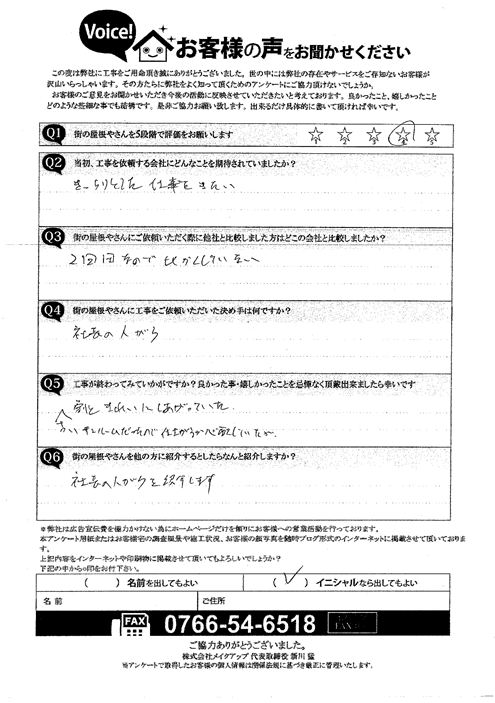 Voice!
お客様の声をお聞かせください
この度は弊社に工事をご用命頂き誠にありがとうございました。世の中には弊社の存在やサービスをご存知ないお客様が
沢山いらっしゃいます。その方たちに弊社をよく知って頂くためのアンケートにご協力頂けないでしょうか。
お客様のご意見をお聞かせいただき今後の活動に反映させていただきたいと考えております。良かったこと、嬉しかったこと
どのような些細な事でも結構です。是非ご協力お願い致します。出来るだけ具体的に書いて頂ければ幸いです。
Q1 街の屋根やさんを5段階で評価をお願いします
Q2 当初、工事を依頼する会社にどんなことを期待されていましたか？
仕事を
Q3 街の屋根やさんにご依頼いただく際に他社と比較しました方はどこの会社と比較しましたか？
2回目なので 比かくしていない
Q4 街の屋根やさんに工事をご依頼いただいた決め手は何ですか？
社長の人がら
Q5 工事が終わってみていかがですか？良かった事・嬉しかったことを忌憚なく頂戴出来ましたら幸いです
あがっていた
Q6 街の屋根やさんを他の方に紹介するとしたらなんと紹介しますか？
社長の人がらを紹介します
※弊社は広告宣伝費を極力かけない為にホームページだけを頼りにお客様への営業活動を行っております。
本アンケート用紙またはお客様宅の調査風景や施工状況、お客様の顔写真を随時ブログ形式のインターネットに掲載させて頂いております。
上記内容をインターネットや印刷物に掲載させて頂いてもよろしいでしょうか？
下記の中から○印をお付け下さい。
（　）名前を出してもよい （✓）イニシャルなら出してもよい
名前 ご住所
FAX 0766-54-6518 FAX
ご協力ありがとうございました。
株式会社メイクアップ 代表取締役 新川 猛
当アンケートで取得したお客様の個人情報は関係法規に基づき厳正に管理いたします。